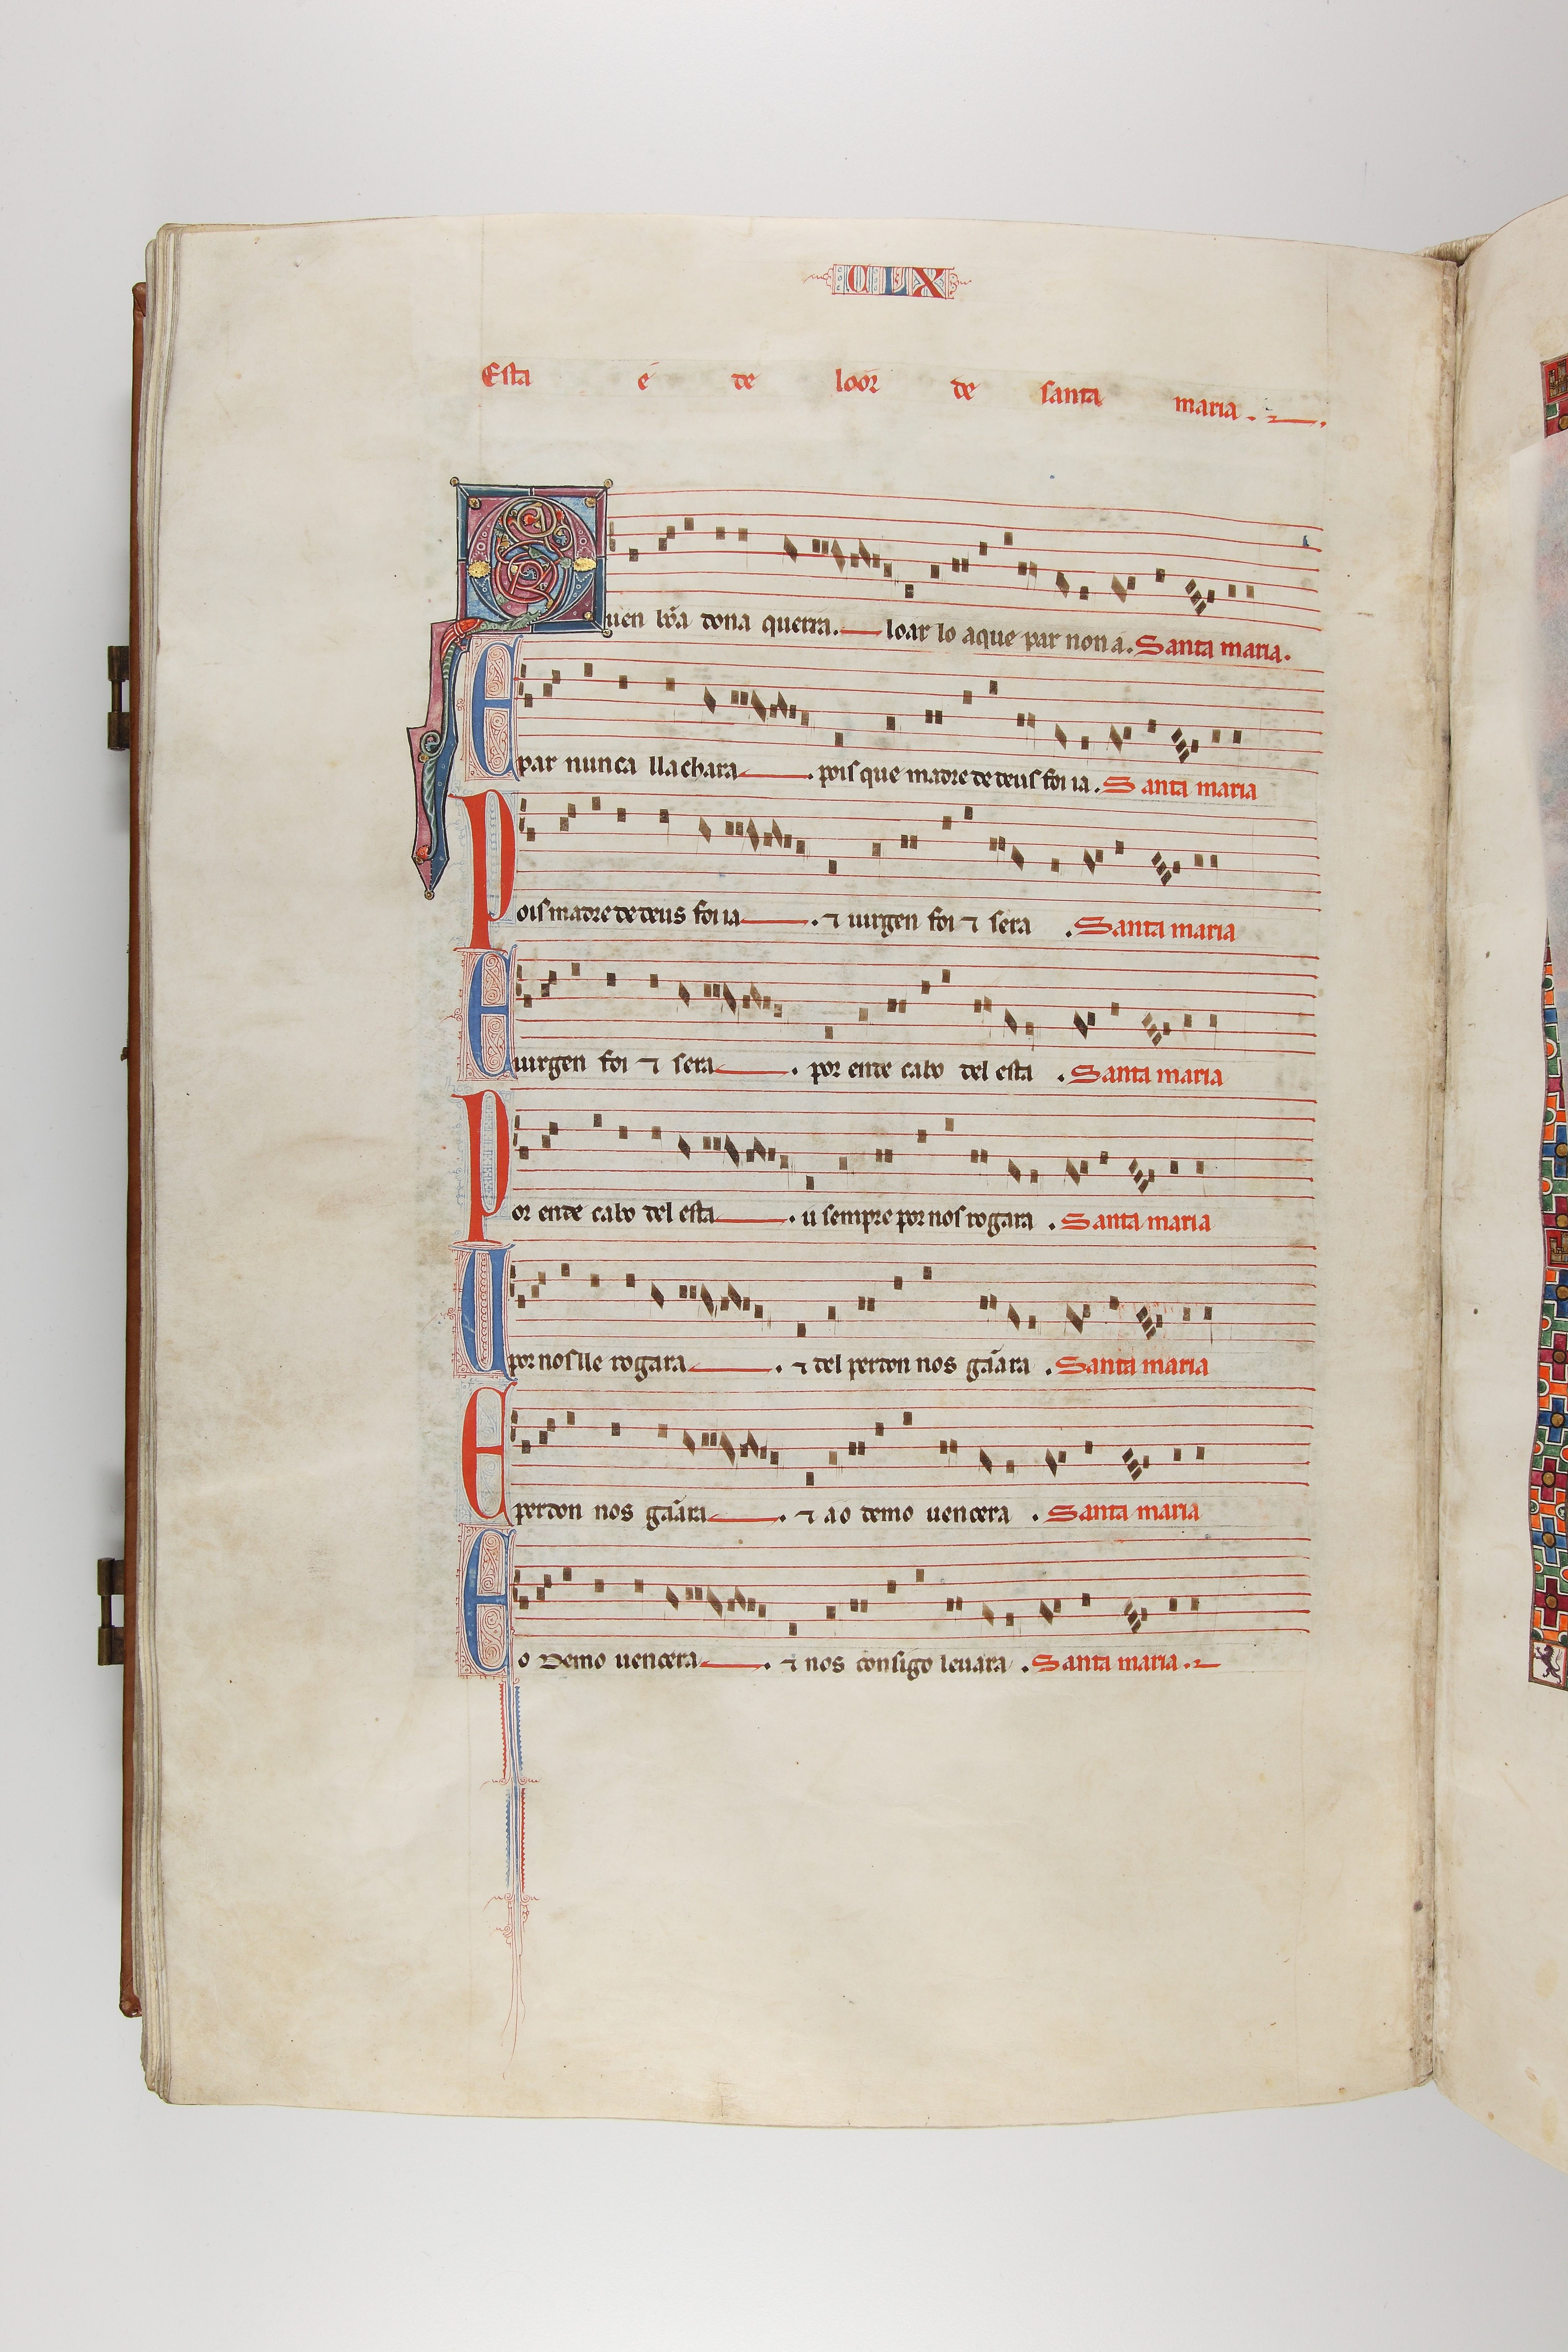 CLX
Esta é de loor de santa maria.
Quen bõa dona querra. loar lo aque par non a. Santa maria.
E par nunca llachara. pois que madre de deus foi ia. Santa maria
Pois madre de deus foi ia. ⁊ uirgen foi ⁊ sera. Santa maria
E uirgen foi ⁊ sera. por ende cabo del esta. Santa maria
Por ende cabo del esta. u sempre por nos rogara. Santa maria
U por nos lle rogara. ⁊ del perdon nos gãara. Santa maria
E perdon nos gãara. ⁊ ao demo uencera. Santa maria
E o Demo uencera. ⁊ nos consigo leuara. Santa maria.